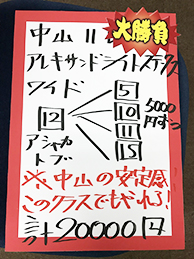 中山11
大勝負
アレキサンドライトステークス
ワイド
12
アシャカトブ
5
10
11
15
5000円ずつ
※中山の安定感
このクラスでもやれる!
計20000円